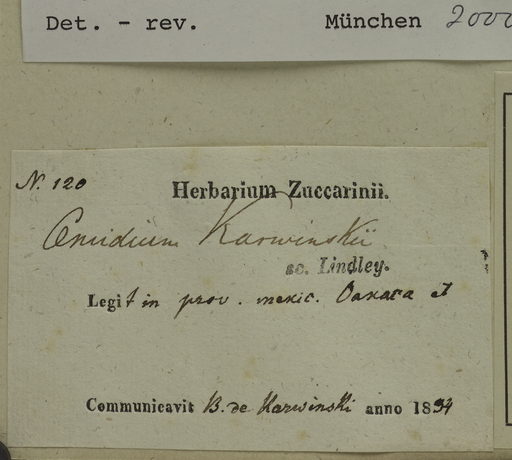 Det. - rev. München 2000
N. 120
Herbarium Zuccarinii.
Oncidium Karwinskii
sc. Lindley.
Legit in prov. mexic. Oaxaca et
Communicavit B. de Karwinski anno 1834